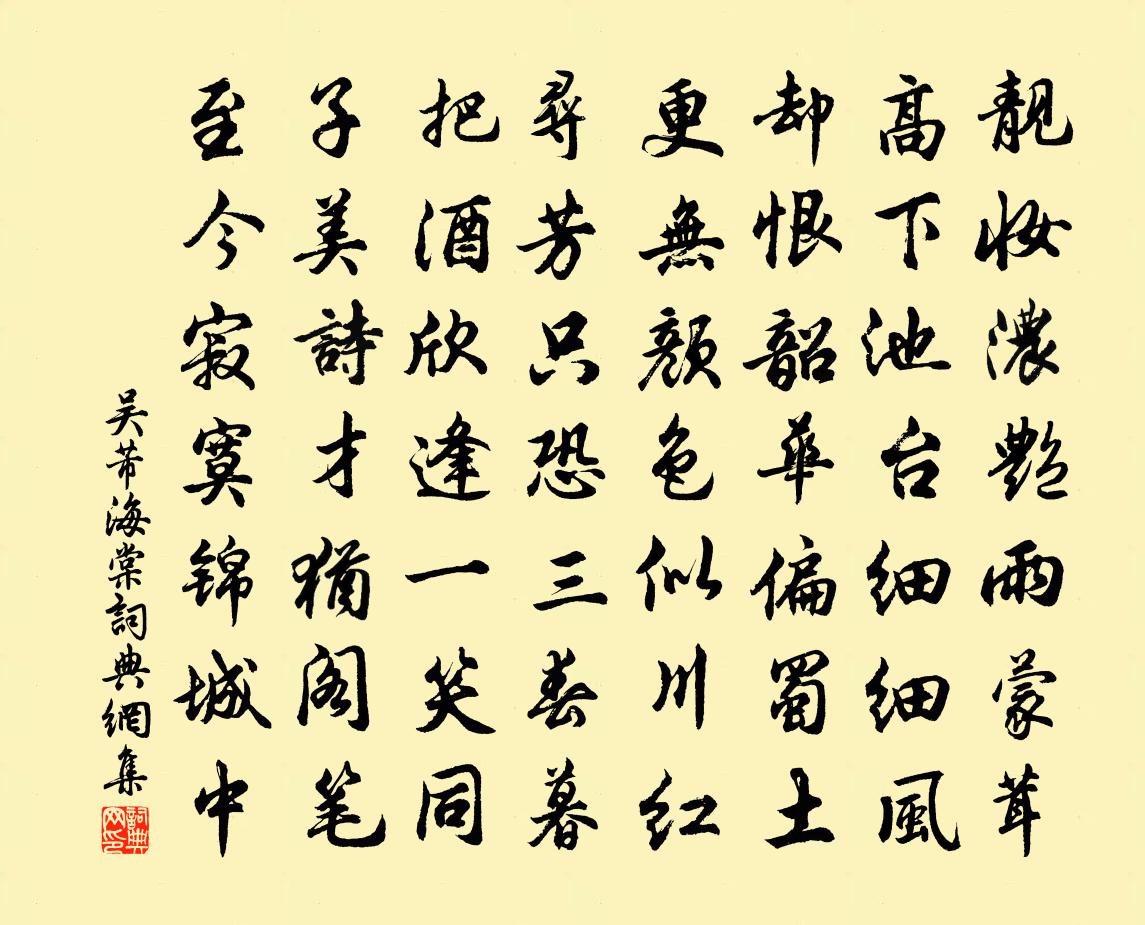 靚妝濃艷雨蒙茸
高下池台細細風
却恨韶華偏蜀土
更無顏色似川紅
尋芳只恐三春暮
把酒欣逢一笑同
子美詩才猶閣笔
至今寂寞錦城中
吴芾海棠詞典網集
詞典網印